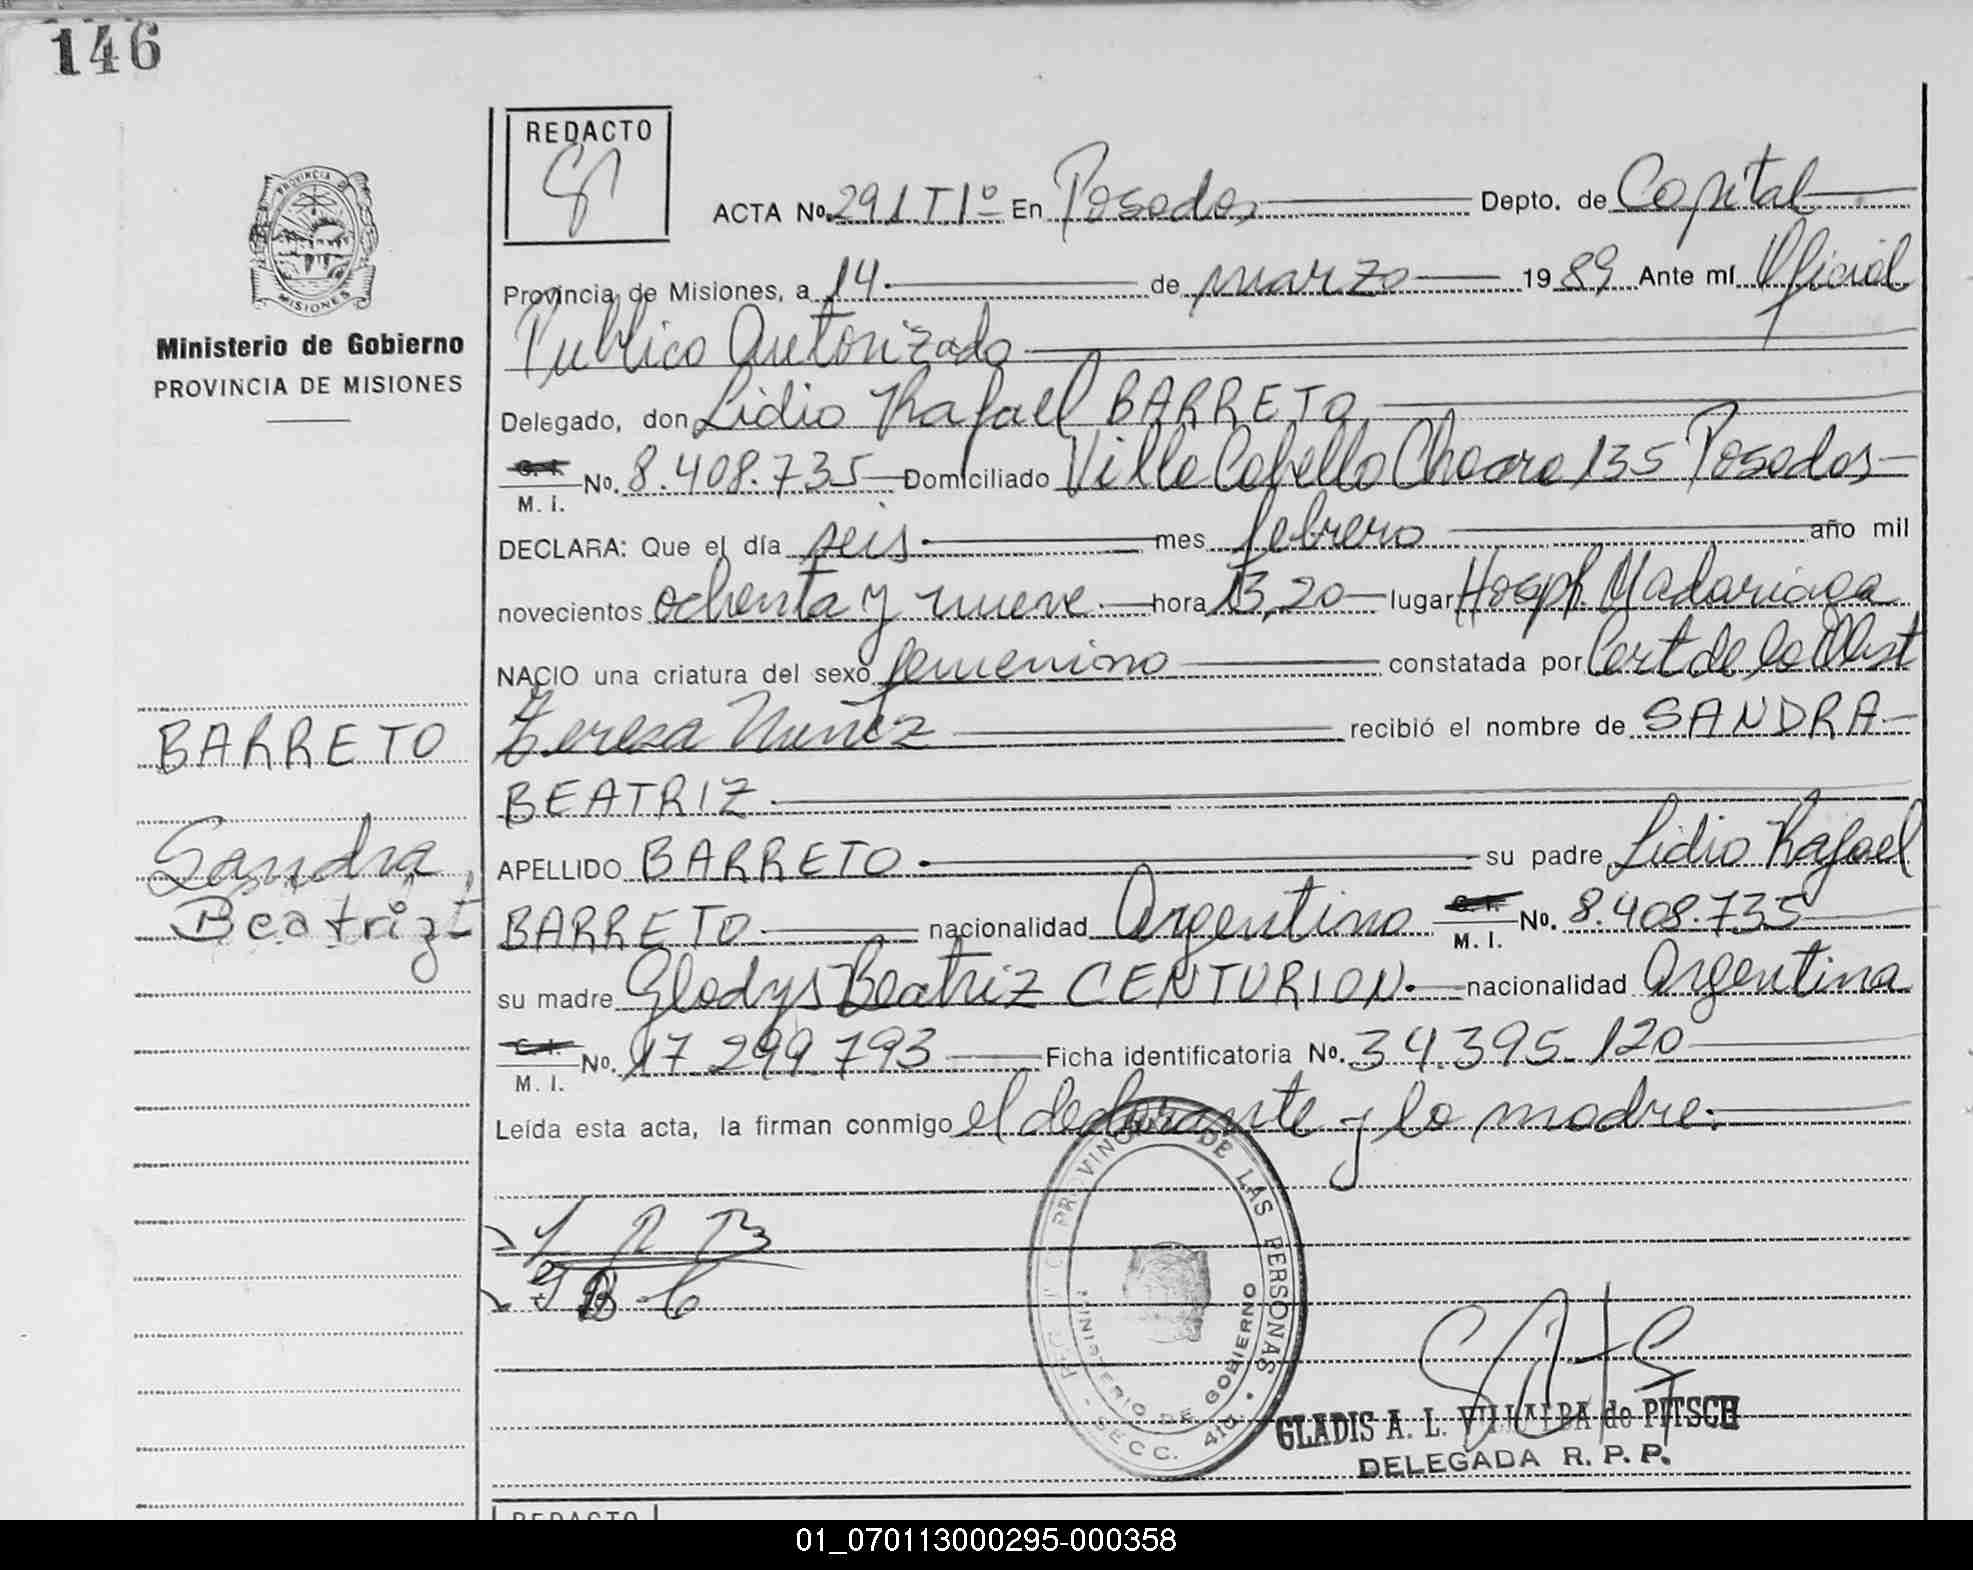 146
REDACTO
PROVINCIA DE
MISIONES
ACTA No. 291 T 1º En Posadas Depto. de Capital
Provincia de Misiones, a 14 de marzo 1989 Ante mí Oficial
Ministerio de Gobierno
Publico Autorizado
PROVINCIA DE MISIONES
Delegado, don Lidio Rafael BARRETO
C. I.
M. I. No. 8.408.735 Domiciliado Villa Cabello Chacra 135 Posadas
DECLARA: Que el día seis mes febrero año mil
novecientos ochenta y nueve hora 13,20 lugar Hosp. Madariaga
NACIO una criatura del sexo femenino constatada por Cert de la Obst
BARRETO
Teresa Nuñez recibió el nombre de SANDRA
BEATRIZ
Sandra
Beatriz
APELLIDO BARRETO su padre Lidio Rafael
BARRETO nacionalidad Argentino C. I. M. I. No. 8.408.735
su madre Gladys Beatriz CENTURION nacionalidad Argentina
C. I.
M. I. No. 17 299.793 Ficha identificatoria No. 34.395.120
Leída esta acta, la firman conmigo el declarante y la madre.
PROVINCIAL DE LAS PERSONAS
MINISTERIO DE GOBIERNO
SECC. 410
GLADIS A. L. VILLALBA de PITSCH
DELEGADA R. P. P.
REDACTO
01_070113000295-000358